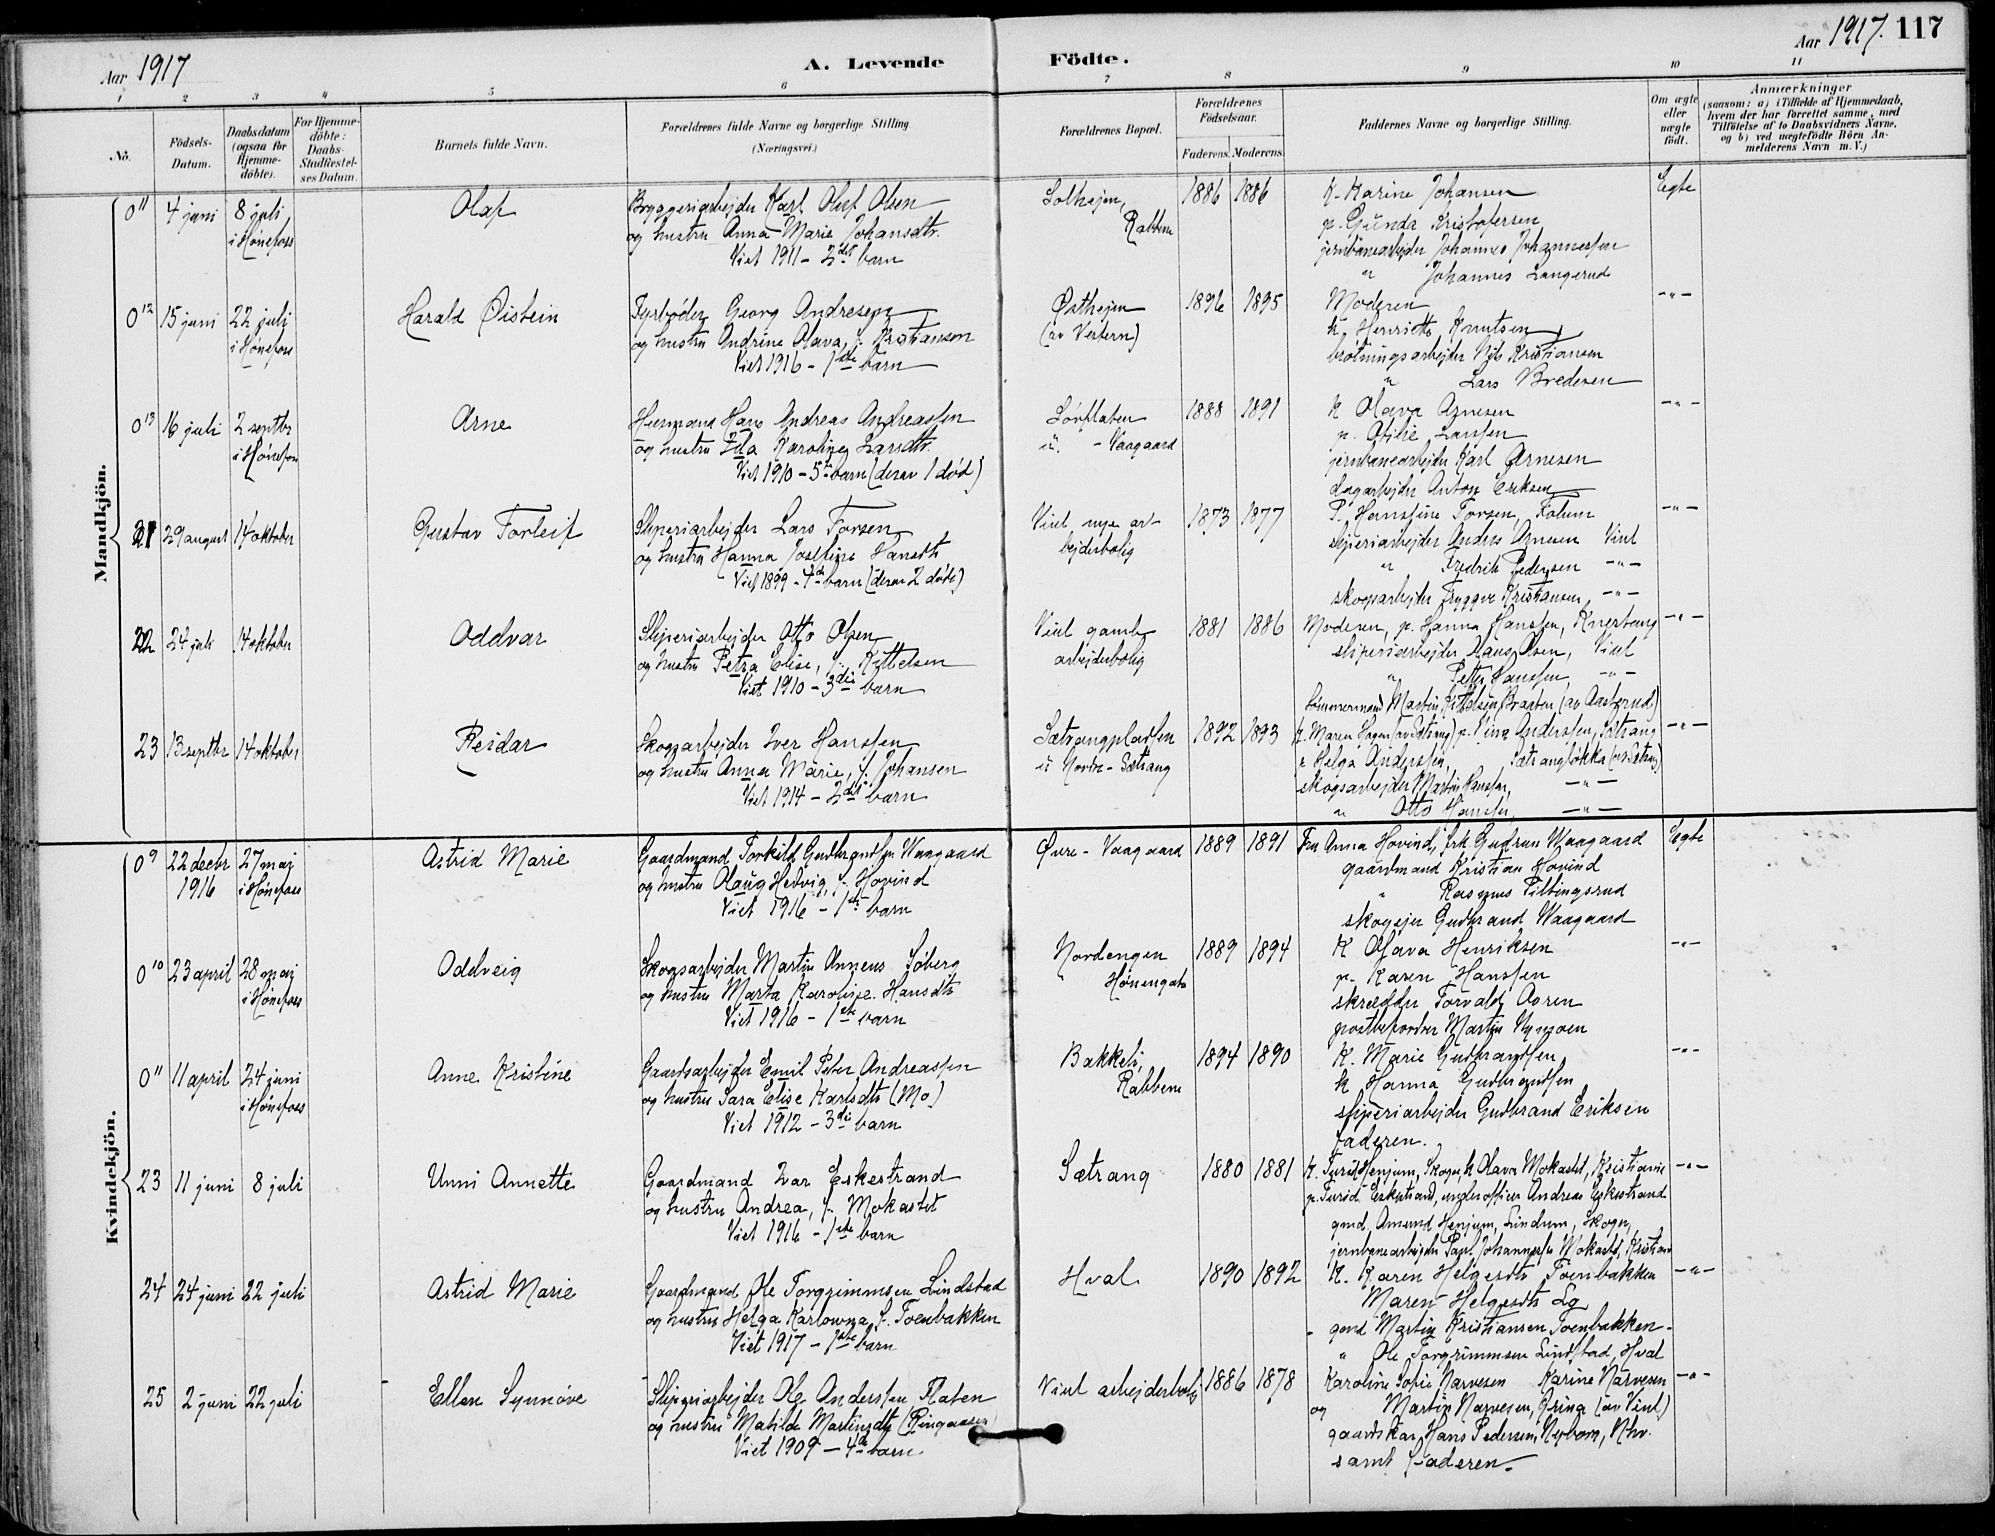 Aar 1917
A. Levende
Födte.
Aar 1917. 117
1 2 3 4 5 6 7 8 9 10 11
No.
Födsels-Datum.
Daabsdatum (ogsaa for Hjemmedöbte).
For Hjemmedöbte: Daabs-Stadfæstelses Datum.
Barnets fulde Navn.
Forældrenes fulde Navne og borgerlige Stilling
(Næringsvei.)
Forældrenes Bopæl.
Forældrenes Födselsaar.
Faderens. Moderens.
Faddernes Navne og borgerlige Stilling.
Om ægte eller uægte födt.
Anmærkninger
(saasom: a) i Tilfælde af Hjemmedaab, hvem der har forrettet samme, med Tilföielse af to Daabsvidners Navne, og b) ved uægtefödte Börn Anmelderens Navn m. V.)
Mandkjön.
0 11 4 juni 8 juli i Hönefoss Olaf
Bryggeriarbejder Karl Oluf Olsen
og hustru Anna Marie Johansdtr.
Viet 1911 - 2det barn
Solhejen, Rabbene 1886 1886
K. Karine Johansen Egte
p. Gunda Kristofersen
jernbanearbejder Johannes Johannessen
" Johannes Langerud
0 12 15 juni 22 juli i Hönefoss Harald Öistein
Fyrböder Georg Andresen
og hustru Andrine Olava, f. Kristiansen
Viet 1916 - 1ste barn
Östhejen (av Vestern) 1896 1895
Moderen -"-
k. Henriette Knutsen
brötningsarbejder Nils Kristiansen
" Lars Bredesen
0 13 16 juli 2 septbr i Hönefoss Arne
Husmand Hans Andreas Andreassen
og hustru Ida Karoline Larsdtr.
Viet 1910 - 5te barn (derav 1 död)
Lövflaten u. - Vaagaard 1888 1891
K Olava Arnesen -"-
p. Otilie Larssen
jernbanearbejder Karl Arnesen
dagarbejder Anton Eriksen
21 29 august 14 oktober Gustav Torleif
Sliperiarbejder Lars Torsen
og hustru Hanna Josefine Hansdtr
Viet 1899 - 7de barn (derav 2 döde)
Viul nye arbejderbolig 1873 1877
P. Hanssine Torsen, Kolum -"-
sliperiarbejder Anders Arnesen Viul
" Fredrik Pedersen -"-
skogsarbejder Tryggve Kristiansen -"-
22 24 juli 14 oktober Oddvar
Sliperiarbejder Otto Olsen
og hustru Petra Elise, f. Kittelsen
Viet 1910 - 3die barn
Viul gamle arbejderbolig 1881 1886
Moderen, p. Hanna Hanssen, Knestang -"-
sliperiarbejder Hans Olsen, Viul
" Petter Hanssen -"-
tömmermand Martin Kittelsen, Braaten (av Aasterud)
23 13 septbr 14 oktober Reidar
Skogsarbejder Iver Hanssen
og hustru Anna Marie, f. Johansen
Viet 1914 - 2det barn
Sætrangplassen u Nordre - Sætrang 1892 1893
k. Maren Hagen p. Anderssen, Sætrang -"-
" Helga Anderssen, Sætrangløkka
skogsarbejder Martin Hanssen, -"-
" Otto Hanssen, -"-
Kvindekjön.
0 9 22 decbr 1916 27 maj i Hönefoss Astrid Marie
Gaardmand Torkild Gudbrandsen Waagaard
og hustru Olaug Hedvig, f. Hovind
Viet 1916 - 1ste barn
Övre - Vaagaard 1889 1891
Fru Anna Hovind, frk Gudrun Waagaard Egte
gaardmand Kristian Hovind
" Rasmus Viltingsrud
skogejer Gudbrand Waagaard
0 10 23 april 28 maj i Hönefoss Oddveig
Skogsarbejder Martin Annæus Söberg
og hustru Marta Karoline Hansdtr
Viet 1916 - 1ste barn
Nordengen Hönengata 1889 1894
K Olava Henriksen -"-
p. Karen Hanssen
skrædder Torvald Aasen
postbefordrer Martin Nymoen
0 11 11 april 24 juni i Hönefoss Anne Kristine
Gaardsarbejder Emil Peter Andreassen
og hustru Sara Elise Karlsdtr (Mo)
Viet 1912 - 3die barn
Bakkeli, Rabbene 1894 1890
K. Marie Gudbrandsen -"-
k Hanna Gudbrandsen
sliperiarbejder Gudbrand Eriksen
faderen.
23 11 juni 8 juli Unni Annette
Gaardmand Ivar Eskestrand
og hustru Andrea, f. Mokastet
Viet 1916 - 1ste barn
Sætrang 1880 1881
K. Turid Henjum, Skogn, k Olava Mokastet, Kristiania -"-
p. Turid Eskestrand, underofficer Andreas Eskestrand
gmd. Amund Henjum, Lindum, Skogn,
jernbanearbejder Paul Johannessen Mokastet, Kristiania
24 24 juni 22 juli Astrid Marie
Gaardmand Ole Torgrimmsen Lindstad
og hustru Helga Karlowna, f. Toenbakken
Viet 1917 - 1ste barn
Hval 1890 1892
K. Karen Helgesdtr Toenbakken -"-
Maren Helgesdtr Lg
gmd Martin Kristiansen Toenbakken
" Ole Torgrimmsen Lindstad, Hval
25 2 juni 22 juli Ellen Synnöve
Sliperiarbejder Ole Anderssen Flaten
og hustru Matilde Martinsdtr (Ringaasen)
Viet 1909 - 4de barn
Viul arbejderbolig 1886 1878
Karoline Sofie Narvesen Karine Narvesen -"-
og Martin Narvesen, (av Viul)
gaardskar Hans Pedersen, Nybom, Nhv.
samt faderen.